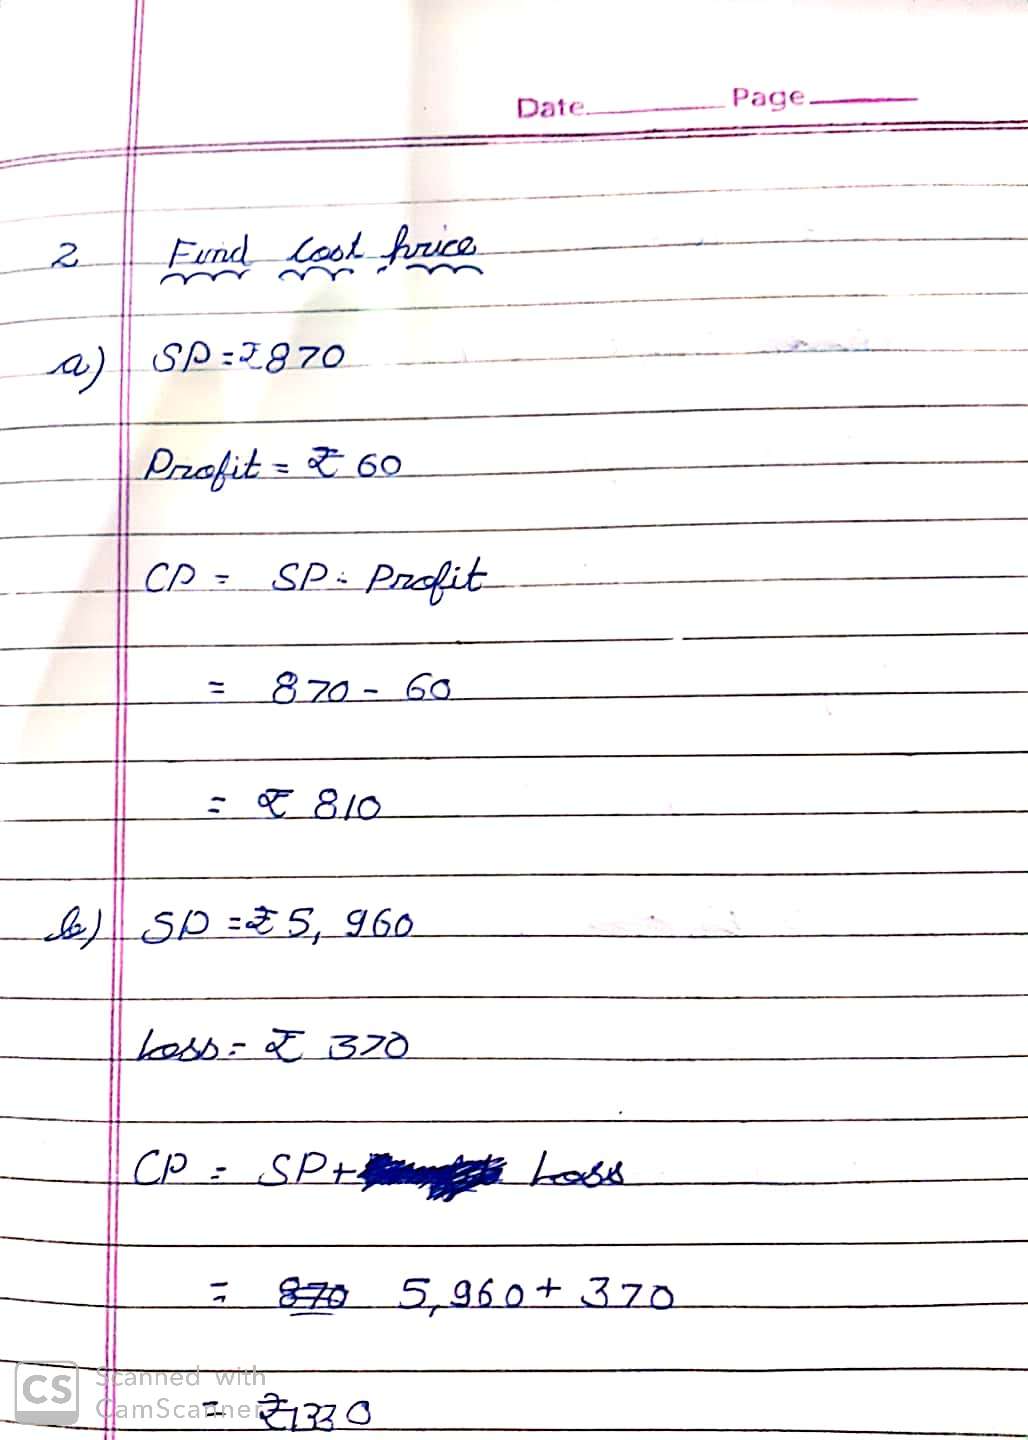 Date Page
2 Find Cost price
a) SP = ₹870
Profit = ₹ 60
CP = SP - Profit
= 870 - 60
= ₹ 810
b) SP = ₹ 5, 960
Loss = ₹ 370
CP = SP + Loss
= 870 5,960 + 370
= ₹1330
CS Scanned with
CamScanner